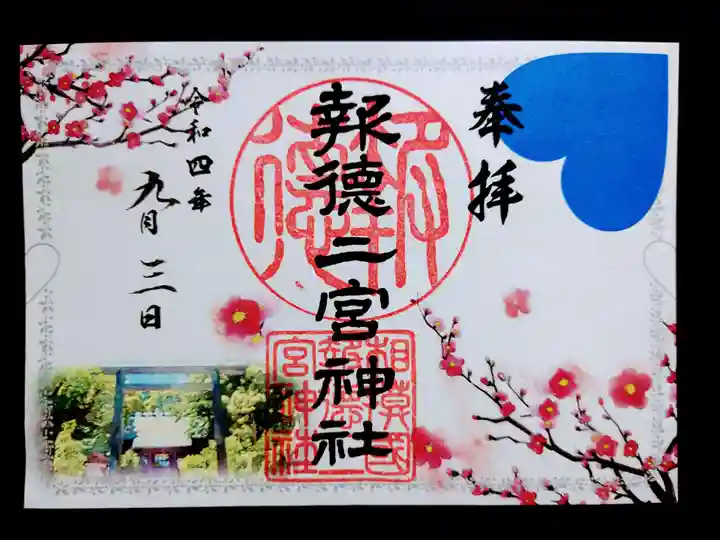 奉拝
報徳二宮神社
相模國
報徳二
宮神社
令和四年
九月三日